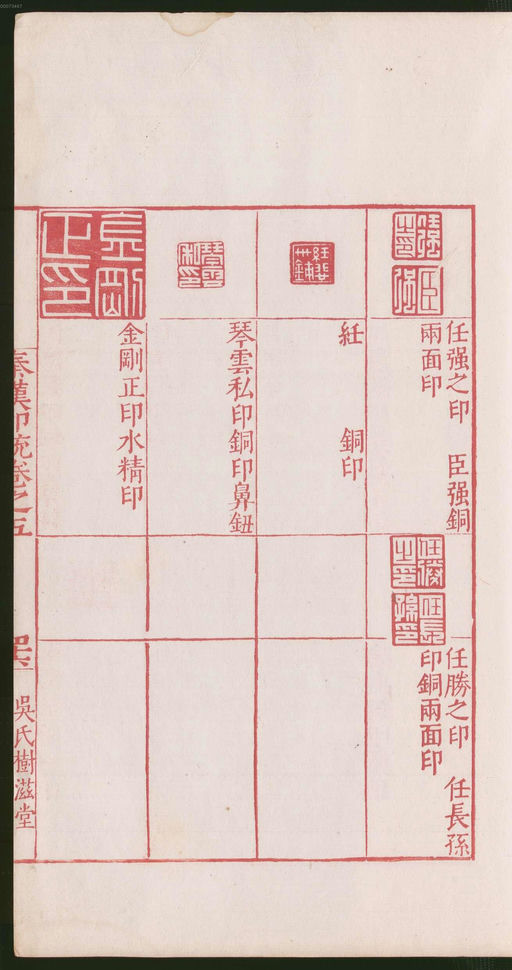 任强之印　臣强銅
兩面印
任勝之印　任長孫
印銅兩面印
紝　　　銅印
琴雲私印銅印鼻鈕
金剛正印水精印
秦漢印統卷之五
吳氏樹滋堂
00073447